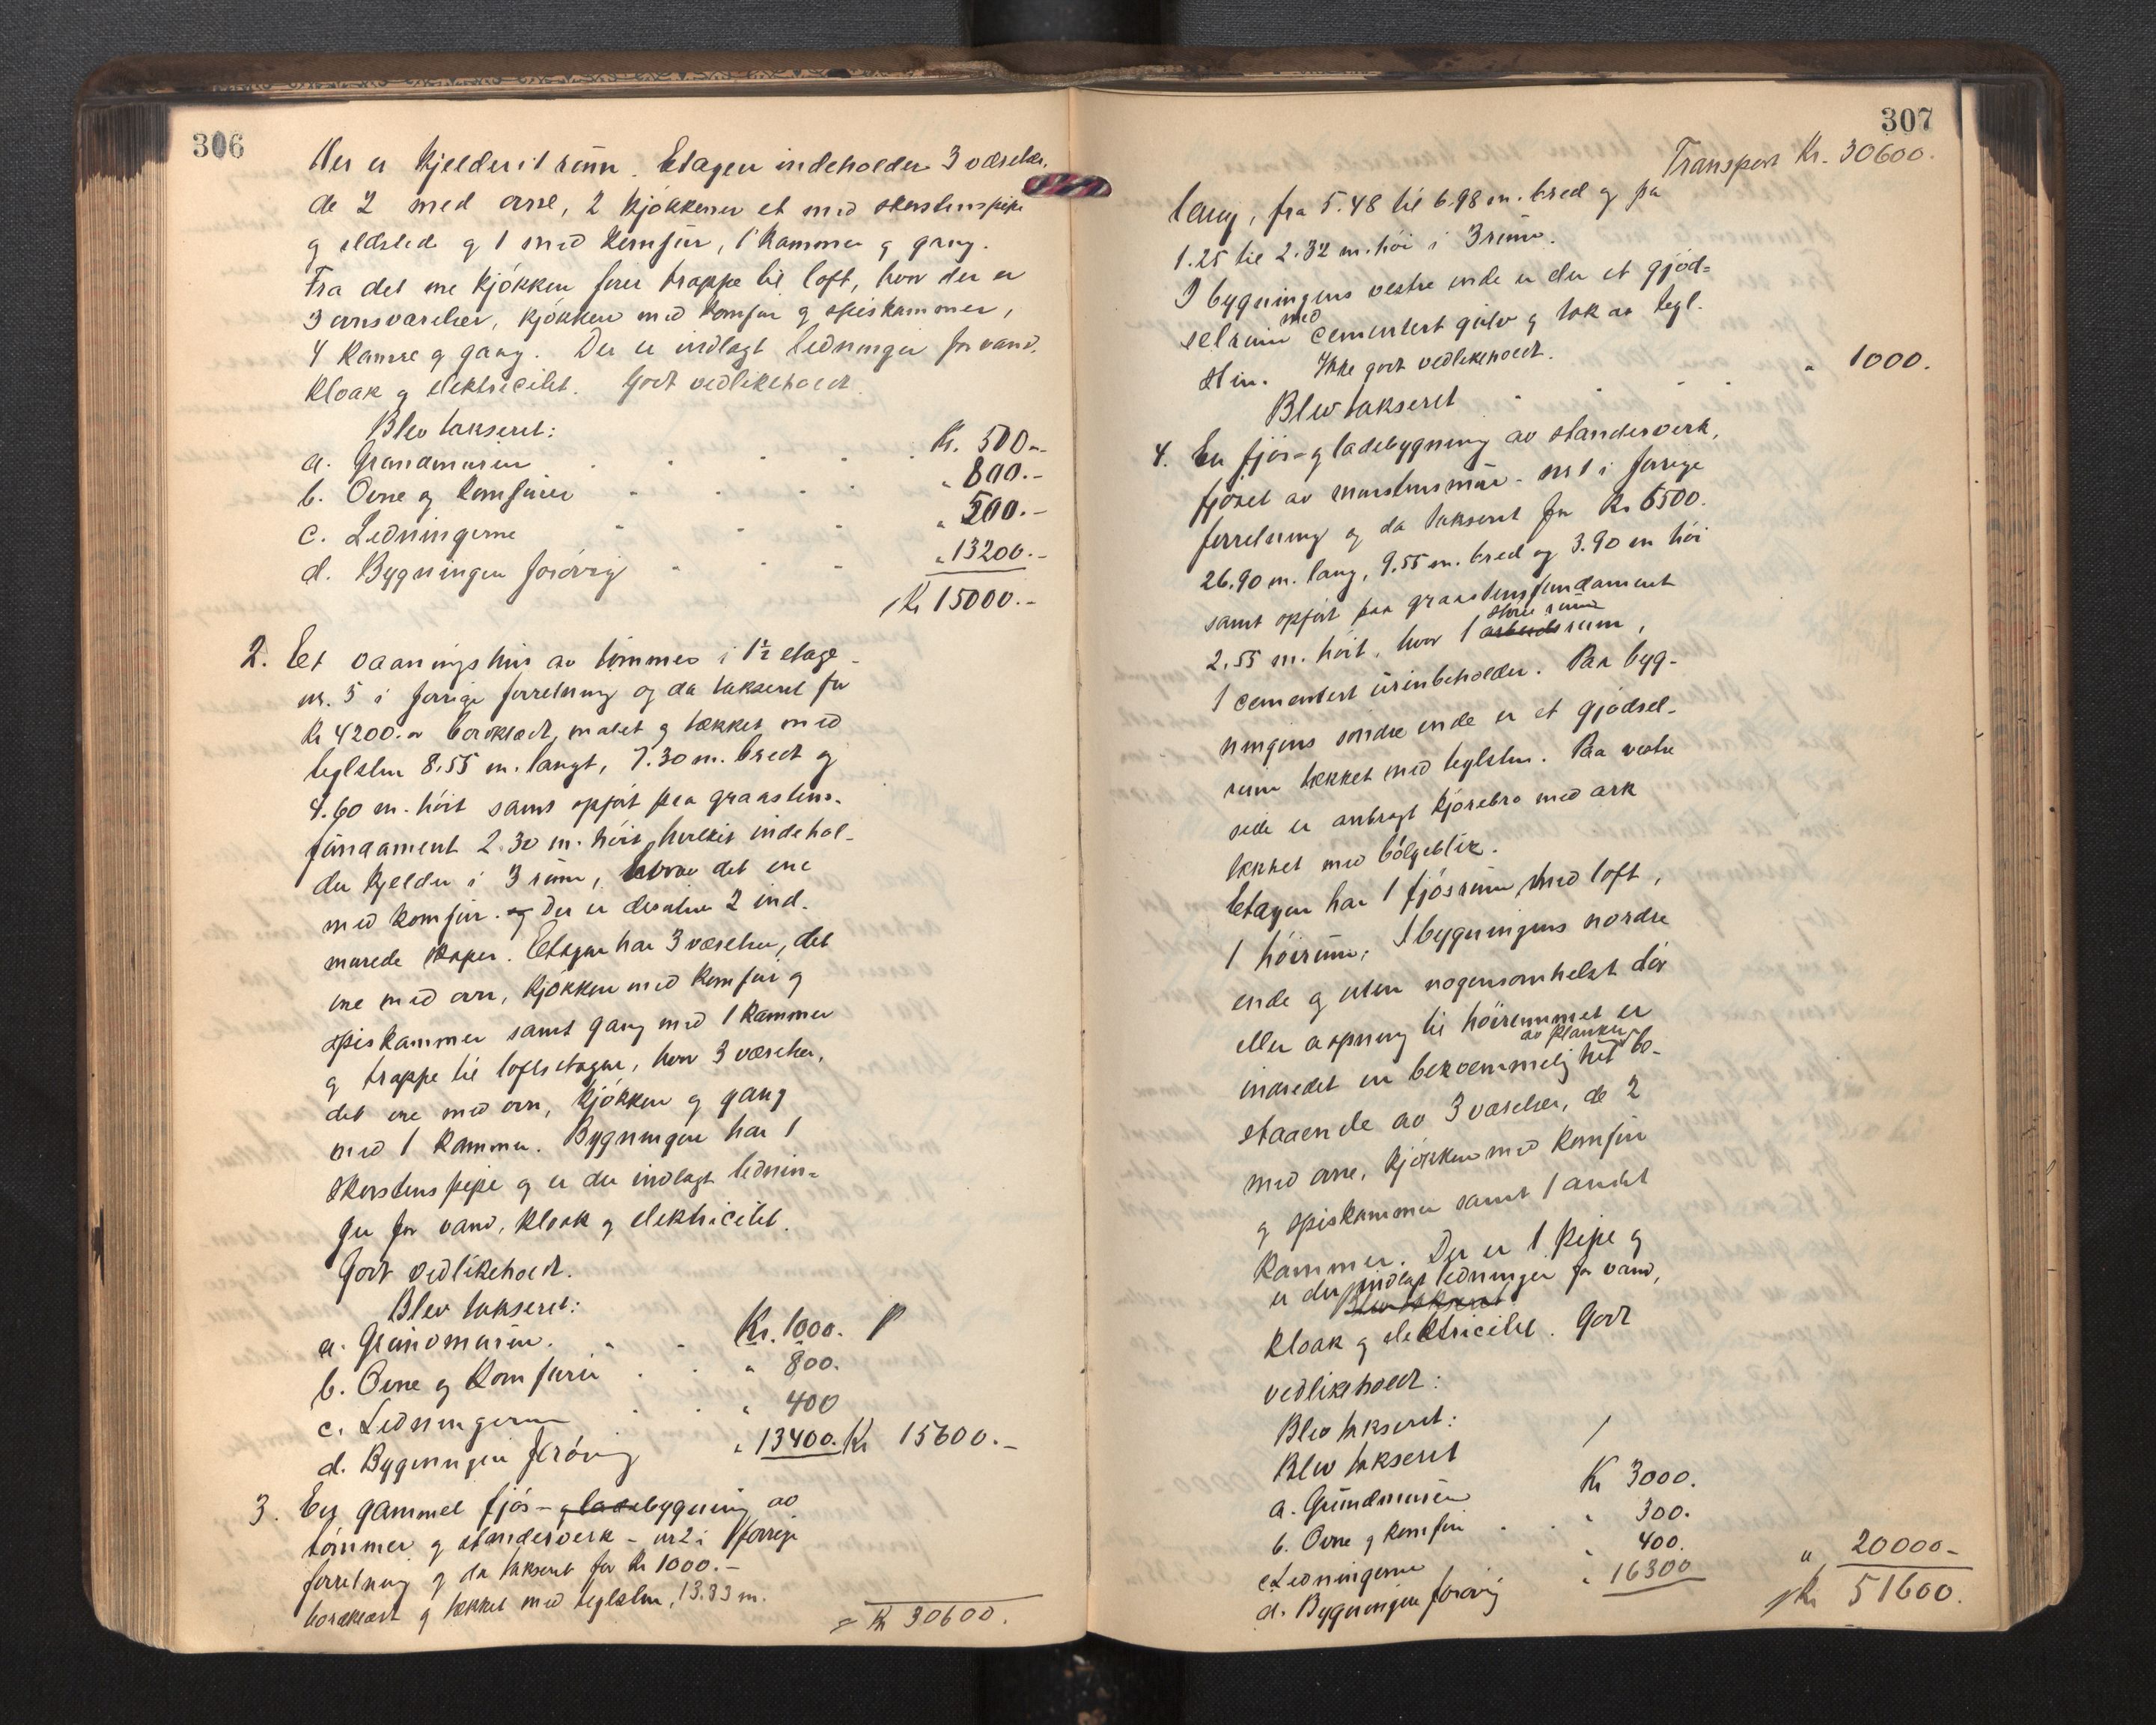 306
Her er kjelder i 1 rum. Etagen indeholder 3 værelser,
de 2 med ovne, 2 kjøkkener et med skorstenspipe
og ildsted og 1 med komfur, 1 kammer og gang.
Fra det ene kjøkken fører trappe til loft, hvor der er
3 ovnsværelser, kjøkken med komfur og spiskammer,
4 kamre og gang. Der er indlagt ledninger for vand,
kloak og elektricitet. Godt vedlikeholdt
Blev takseret:
a. Grundmuren Kr. 500.-
b. Ovne og komfurer " 800.-
c. Ledningerne " 500.-
d. Bygningen forøvrig " 13200.-
Kr 15000.-
2. Et vaaningshus av tømmer i 1½ etage -
nr. 5 i forrige forretning og da takseret for
Kr 4200.- bordklædt, malet og tækket med
teglsten 8.55 m. langt, 7.30 m. bredt og
4.60 m. høit samt opført paa graastens-
fundament 2.30 m. høit, hvilket indehol-
der kjelder i 3 rum, hvorav det ene
med komfur. og Der er desuten 2 ind-
murede skaper. Etagen har 3 værelser, det
ene med ovn, kjøkken med komfur og
spiskammer samt gang med 1 kammer
og trappe til loftsetagen, hvor 3 værelser,
det ene med ovn, kjøkken og gang
med 1 kammer. Bygningen har 1
skorstenspipe og er der indlagt lednin-
ger for vand, kloak og elektricitet.
Godt vedlikeholdt.
Blev takseret:
a. Grundmuren. Kr. 1000.
b. Ovne og Komfurer " 800.
c. Ledningerne " 400
d. Bygningen forøvrig " 13400. Kr 15600.-
3. En gammel fjøs- og ladebygning av
tømmer og standerverk - nr 2 i forrige
forretning og da takseret for Kr 1000.-
bordklædt og tækket med teglsten, 13.33 m.
= Kr 30600.
307
Transport Kr. 30600.
lang, fra 5.48 til 6.98 m. bred og fra
1.25 til 2.32 m. høi i 3 rum.
I bygningens vestre ende er der et gjød-
selrum med cementert gulv og tak av tegl-
sten. Ikke godt vedlikeholdt.
Blev takseret " 1000.
4. En fjøs- og ladebygning av standerverk,
fjøset av murstensmur - nr 1 i forrige
forretning og da takseret for Kr 6500.
26.90 m. lang, 9.55 m. bred og 3.90 m høi
samt opført paa graastensfundament
2.55 m. høit, hvor 1 arbeidsrum større rum,
1 cementert urinbeholder. Paa byg-
ningens søndre ende er et gjødsel-
rum tækket med teglsten. Paa vestre
side er anbragt kjørebro med ark
tækket med bølgeblik.
Etagen har 1 fjøsrum med loft,
1 høirum; I bygningens nordre
ende og uten nogensomhelst dør
eller aapning til høirummet er
indredet en bekvemmelighet av planker be-
staaende av 3 værelser, de 2
med ovne, kjøkken med komfur
og spiskammer samt 1 andet
kammer. Der er 1 pipe og
er der indlagt ledninger for vand,
Blev takseret
kloak og elektricitet. Godt
vedlikeholdt:
Blev takseret:
Blev takseret
a. Grundmuren Kr 3000.
b. Ovne og komfur " 300.
c. Ledningerne " 400.
d. Bygningen forøvrig " 16300 " 20000-
Kr 51600.